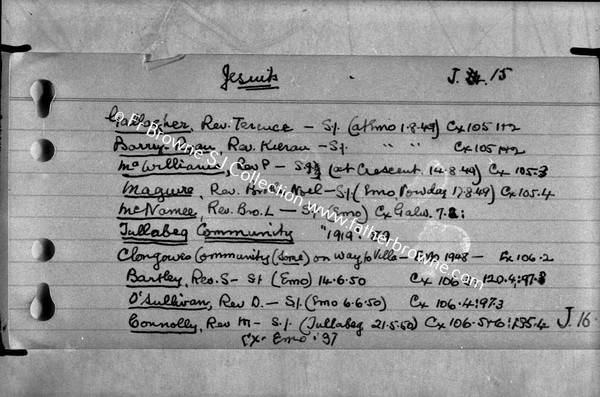 Jesuits J. 15
Gallagher, Rev. Terence – S.J. (at Emo 1.8.49) Cx 105 1+2
Barry-Ryan, Rev. Kieran – S.J. " " " Cx 105 1+2
McWilliams, Rev P – S.J. (at Crescent. 14.8.49) Cx 105.3
Maguire, Rev. Noel – S.J. (Emo 17.8.49) Cx 105.4
McNamee, Rev. Bro. L – S.J. (Emo) Cx Galw. 7.
Tullabeg Community "1919".
Clongowes Community (some) on way to Villa – Emo 1948 – Cx 106.2
Bartley, Rev. S – S.J. (Emo) 14.6.50 Cx 106
O'Sullivan, Rev D. – S.J. (Emo 6.6.50) Cx 106.4: 97.3
Connolly, Rev M – S.J. (Tullabeg 21.5.50) Cx 106.5+6: J. 16
Cx. Emo. 97
© Fr Browne S.J. Collection www.fatherbrowne.com